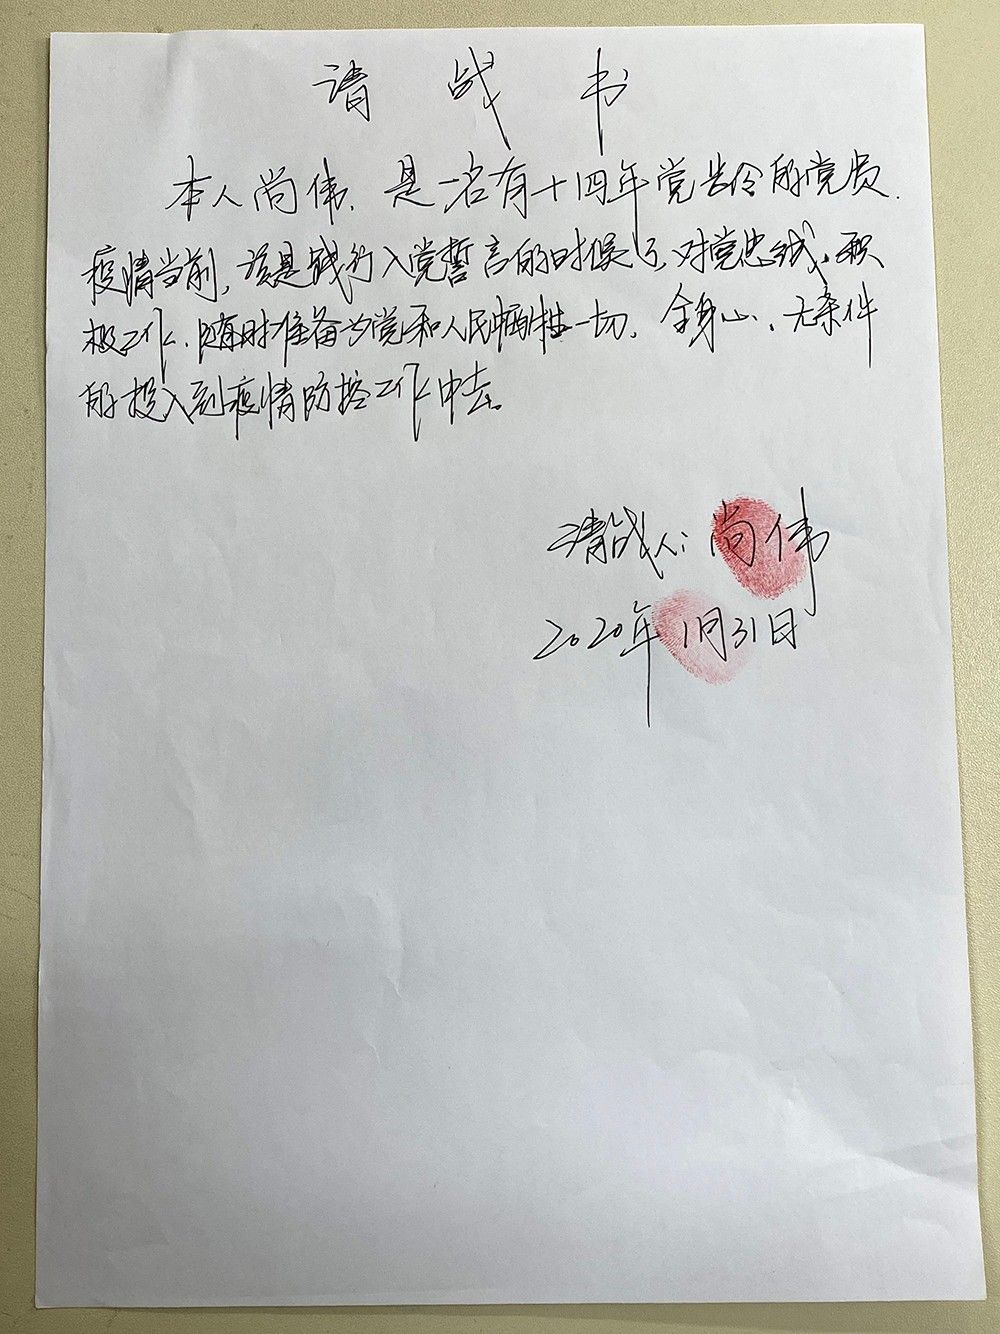 请战书
本人尚伟,是一名有十四年党龄的党员.
疫情当前,该是践行入党誓言的时候了,对党忠诚、积
极工作、随时准备为党和人民牺牲一切.全身心、无条件
的投入到疫情防控工作中去。
请战人:尚伟
2020年1月31日